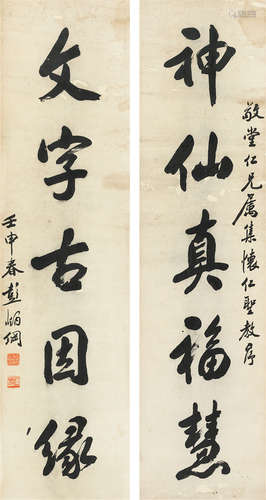 神仙真福慧
敬堂仁兄属集怀仁聖教序
文字古因缘
壬申春彭炳纲